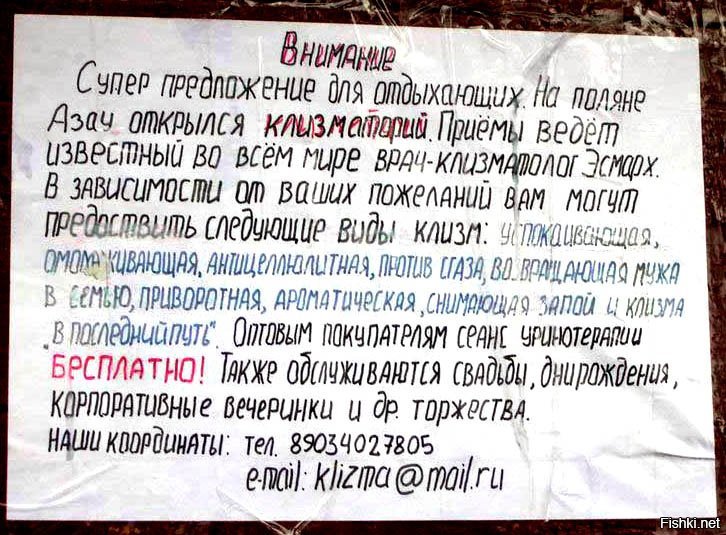 Внимание
Супер предложение для отдыхающих. На поляне
Азау открылся клизматорий. Приёмы ведёт
известный во всём мире врач-клизматолог Эсмарх.
В зависимости от ваших пожеланий вам могут
предоставить следующие виды клизм: успокаивающая,
омолаживающая, антицеллюлитная, против сглаза, возвращающая мужа
в семью, приворотная, ароматическая, снимающая запой и клизма
"в последний путь". Оптовым покупателям сеанс уринотерапии
БЕСПЛАТНО! Также обслуживаются свадьбы, дни рождения,
корпоративные вечеринки и др. торжества.
наши координаты: тел. 89034027805
e-mail: klizma@mail.ru
Fishki.net